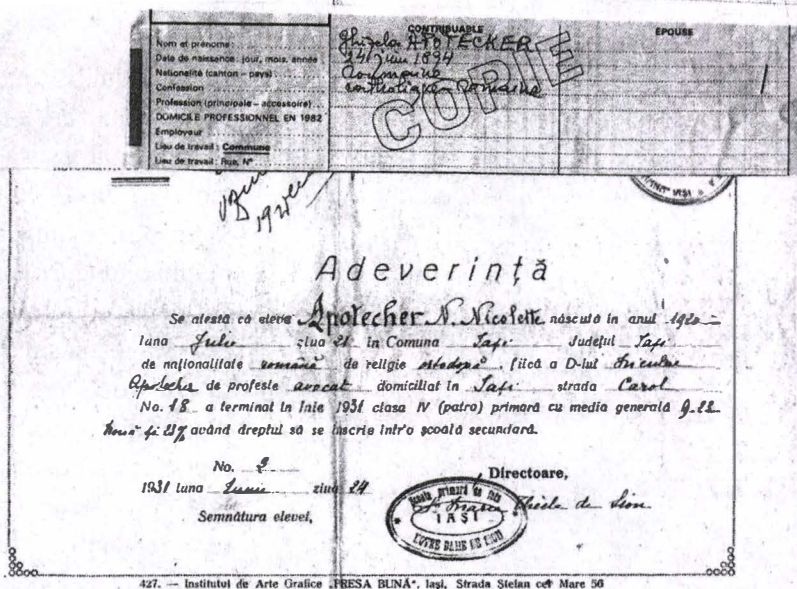 CONTRIBUABLE
EPOUSE
Nom et prénoms : Ghizela APOTECKER
Date de naissance: jour, mois, année 24 Juin 1894
Nationalité (canton – pays) Roumaine
Confession Romaine
Profession (principale – accessoire)
DOMICILE PROFESSIONNEL EN 1982
Employeur
Lieu de travail : Commune
Lieu de travail : Rue, N°
COPIE
IAȘI
Adeverință
Se atestă că eleva Apotecher N. Nicolette născută în anul 1920
luna Julie ziua 21 în Comuna Iași Județul Iași
de naționalitate română de religie ortodoxă, fiică a D-lui
Apotecher de profesie avocat domiciliat în Iași strada Carol
No. 18 a terminat în Iulie 1931 clasa IV (patra) primară cu media generală 9.23
Nouă și 23% având dreptul să se înscrie într'o școală secundară.
No. 9
1931 luna Iunie ziua 24
Directoare,
Semnătura elevei,
de Sion
Școala primară de fete
IAȘI
NOTRE DAME DE SION
427. — Institutul de Arte Grafice „PRESA BUNĂ“, Iași, Strada Ștefan cel Mare 56